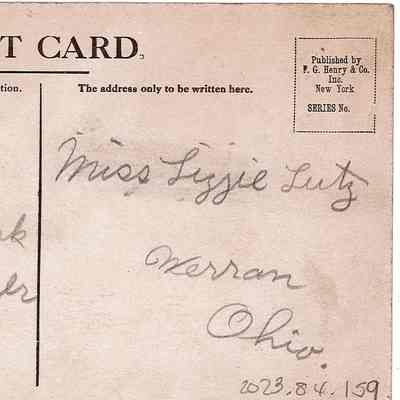 T CARD.
tion.
The address only to be written here.
Published by
F. G. Henry & Co.
Inc.
New York
SERIES No.
Miss Lizzie Lutz
Werran
Ohio.
2023.84.159